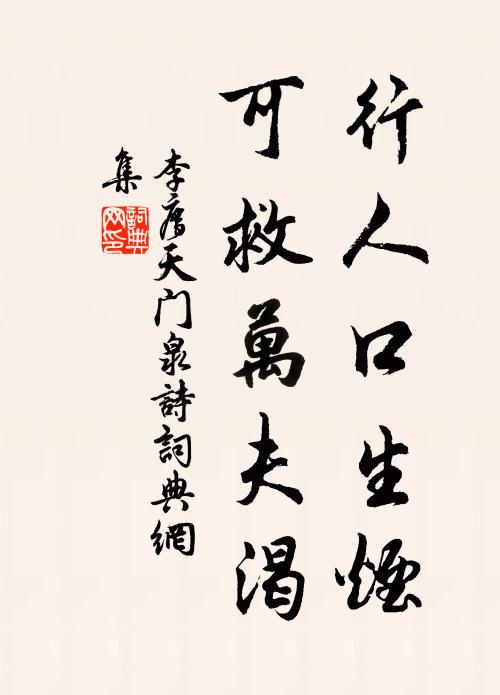 行人口生煙
可救萬夫渴
李廌天門泉詩詞典網
集
詞典網印